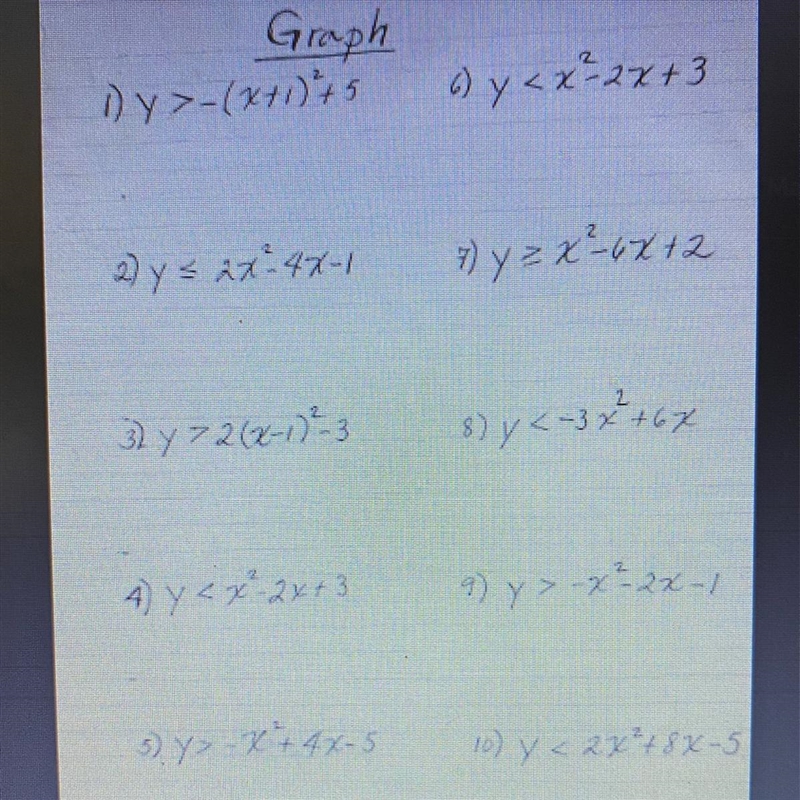 Graph
1) y > -(x+1)²+5
6) y < x²-2x+3
2) y ≤ 2x²-4x-1
7) y ≥ x²-6x+2
3) y > 2(x-1)²-3
8) y < -3x²+6x
4) y < x²-2x+3
9) y > -x²-2x-1
5) y > -x²+4x-5
10) y < 2x²+8x-5